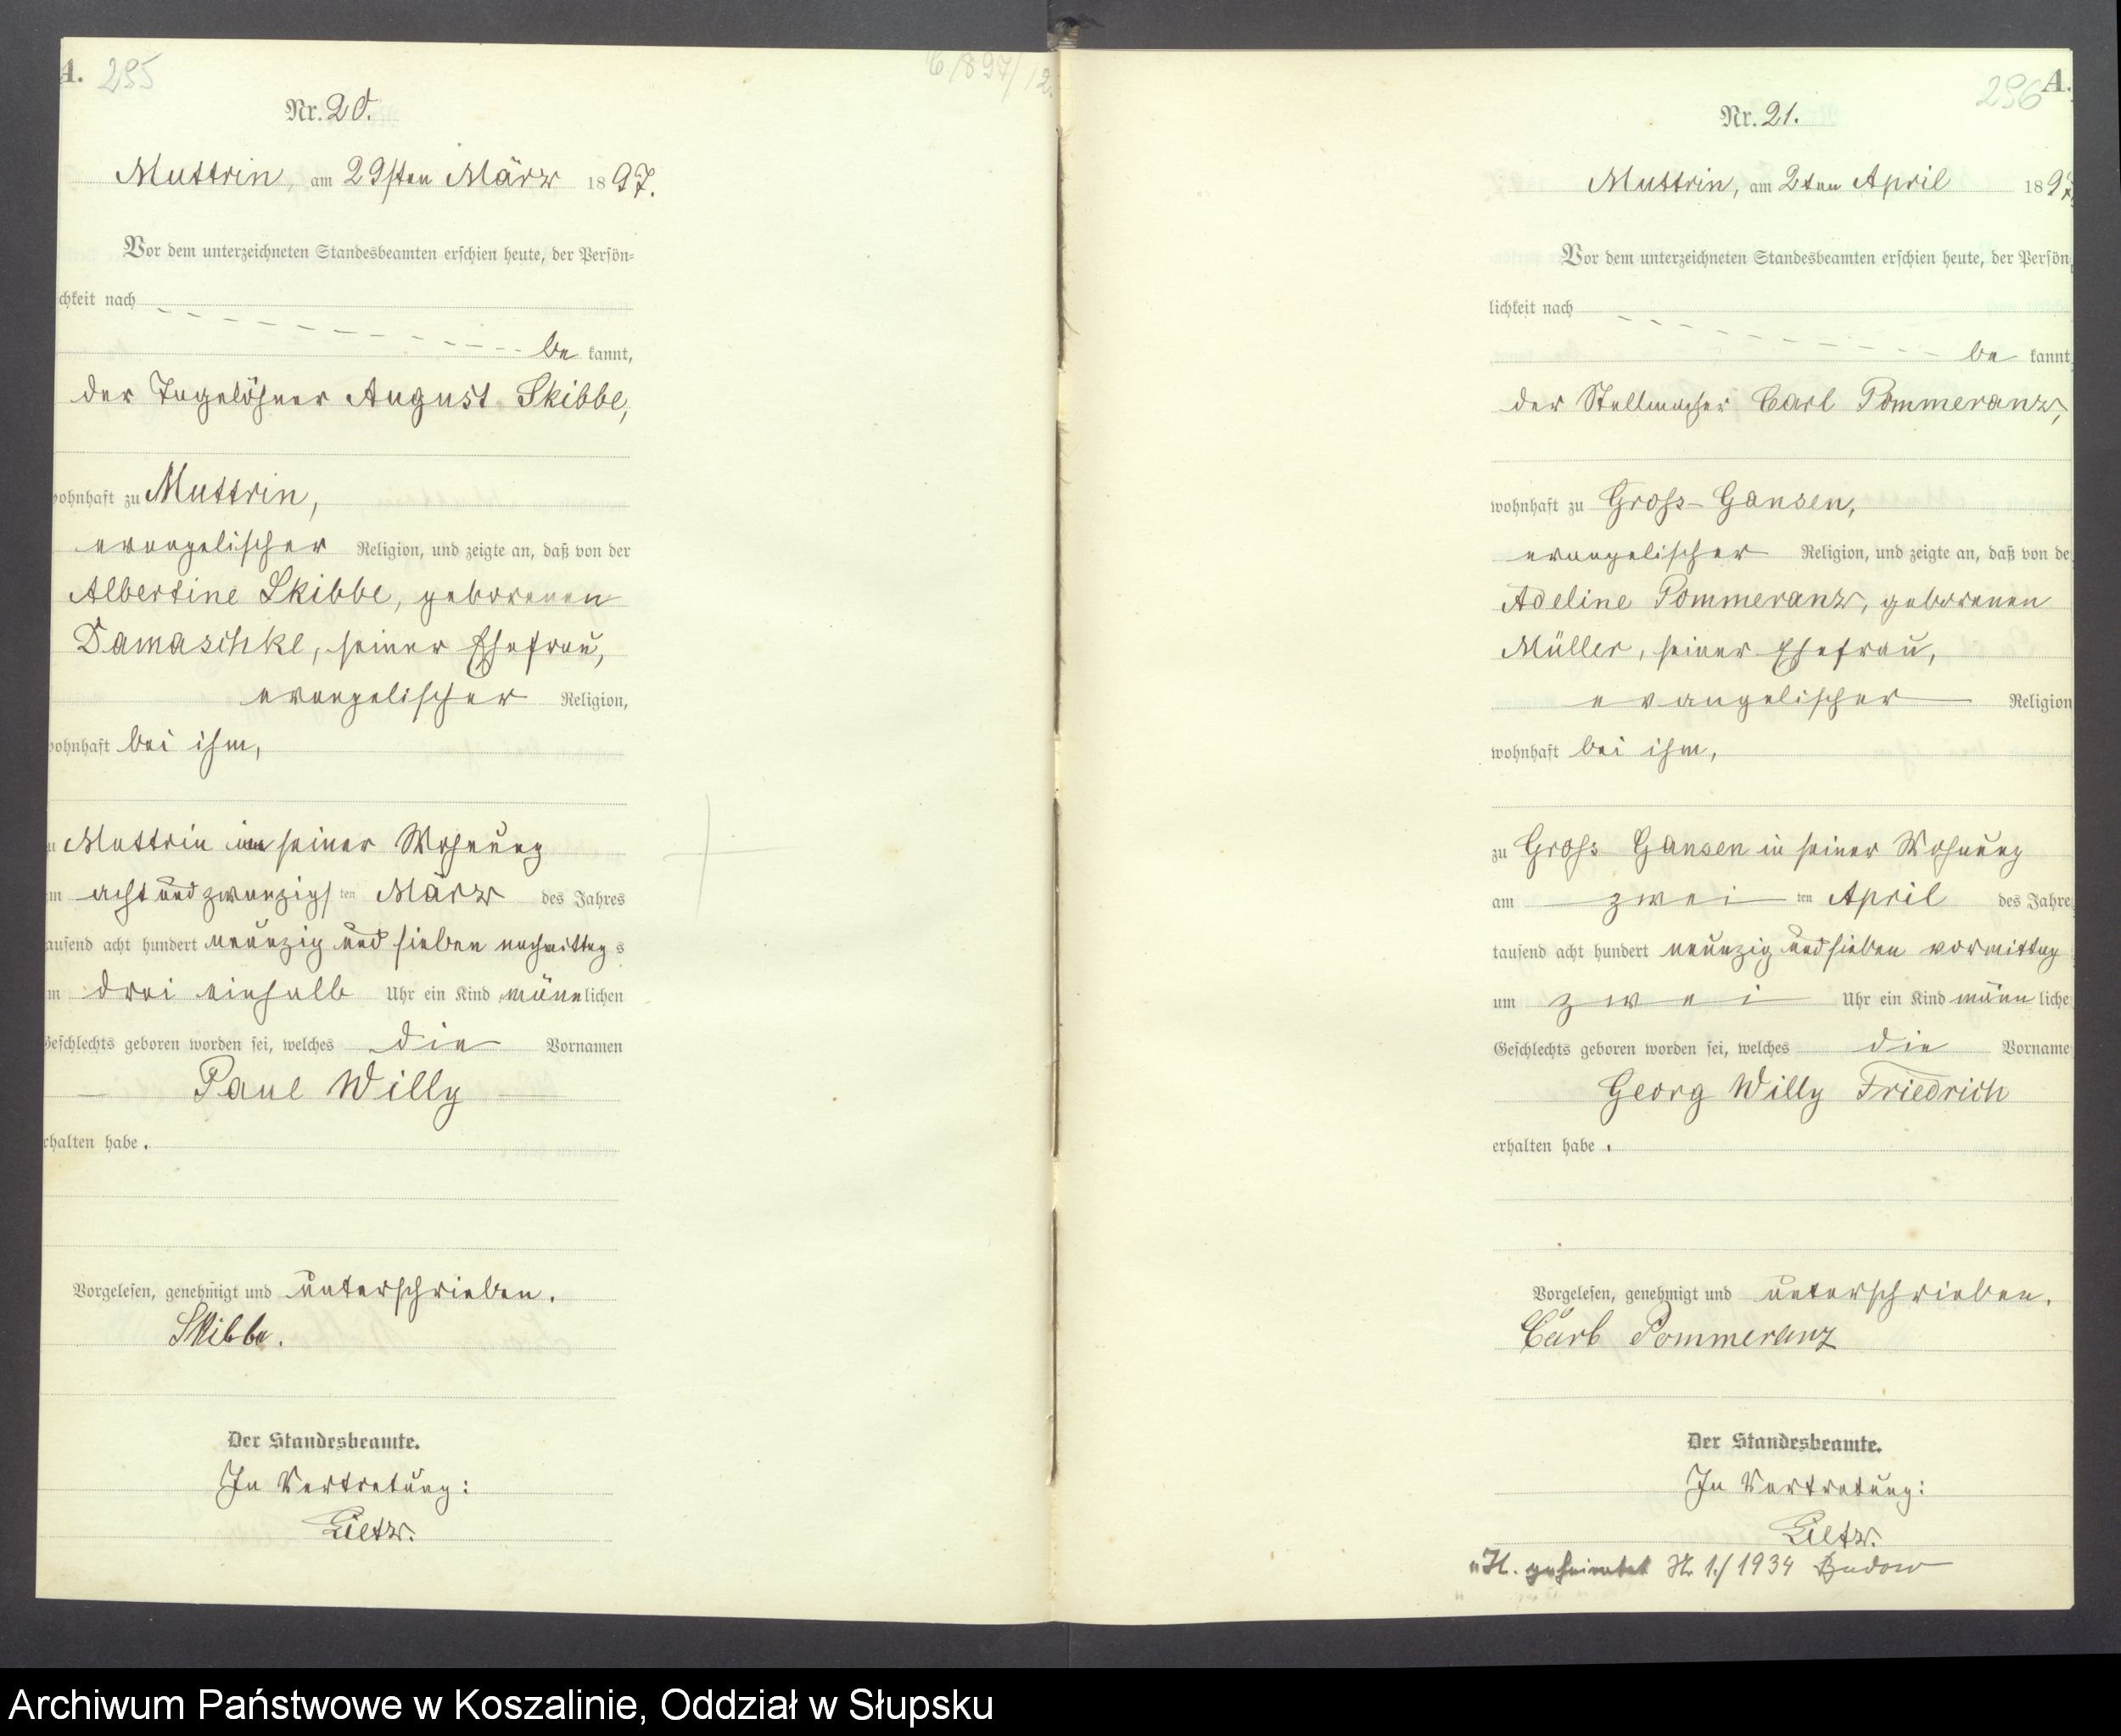 A. 295
6/897/12.
Nr. 20.
Muttrin, am 29sten März 1897.
Vor dem unterzeichneten Standesbeamten erschien heute, der Persön-
chkeit nach
be kannt,
der Tagelöhner August Skibbe,
wohnhaft zu Muttrin,
evangelischer Religion, und zeigte an, daß von der
Albertine Skibbe, geborenen
Damaschke, seiner Ehefrau,
evangelischer Religion,
wohnhaft bei ihm,
zu Muttrin in seiner Wohnung
am acht und zwanzigsten März des Jahres
tausend acht hundert neunzig und sieben nachmittags
um drei einhalb Uhr ein Kind männlichen
Geschlechts geboren worden sei, welches die Vornamen
Paul Willy
erhalten habe.
Vorgelesen, genehmigt und unterschrieben.
Skibbe.
Der Standesbeamte.
In Vertretung:
Lietz.
296 A.
Nr. 21.
Muttrin, am 2ten April 1897
Vor dem unterzeichneten Standesbeamten erschien heute, der Persön
lichkeit nach
be kannt
der Stellmacher Carl Pommeranz,
wohnhaft zu Gross-Gansen,
evangelischer Religion, und zeigte an, daß von de
Adeline Pommeranz, geborenen
Müller, seiner Ehefrau,
evangelischer Religion
wohnhaft bei ihm,
zu Gross Gansen in seiner Wohnung
am zwei ten April des Jahre
tausend acht hundert neunzig und sieben vormittag
um zwei Uhr ein Kind männ liche
Geschlechts geboren worden sei, welches die Vorname
Georg Willy Friedrich
erhalten habe.
Vorgelesen, genehmigt und unterschrieben.
Carl Pommeranz
Der Standesbeamte.
In Vertretung:
Lietz.
H. geheiratet Nr 1./1934 Budow
Archiwum Państwowe w Koszalinie, Oddział w Słupsku